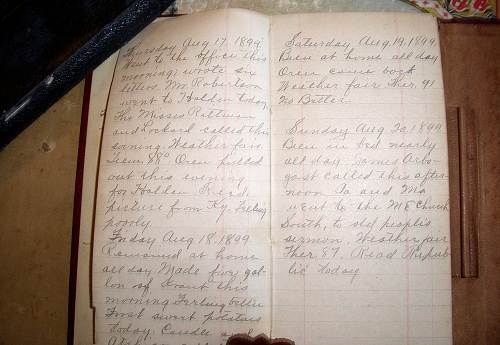 Thursday Aug 17, 1899
Went to the office this
morning, wrote six
letters Mr Robertson
went to Holden today,
The Misses Rittman
and Lockard called this
evening. Weather fair.
Ther. 88° Oren pulled
out this evening
for Holden Recd.
picture from Ky. Feeling
poorly
Friday Aug 18. 1899
Remained at home
all day Made five gal-
lon of Kraut this
morning Feeling better
First sweet potatoes
today.
Saturday, Aug. 19, 1899,
Been at home all day
Oren came back
Weather fair Ther. 91
No Better.
Sunday Aug 20, 1899
Been in bed nearly
all day. James Arbo-
gast called this after-
noon Pa and Ma
went to the M E Church
South, to old people's
sermon. Weather fair
Ther 87. Read Repub-
lic today